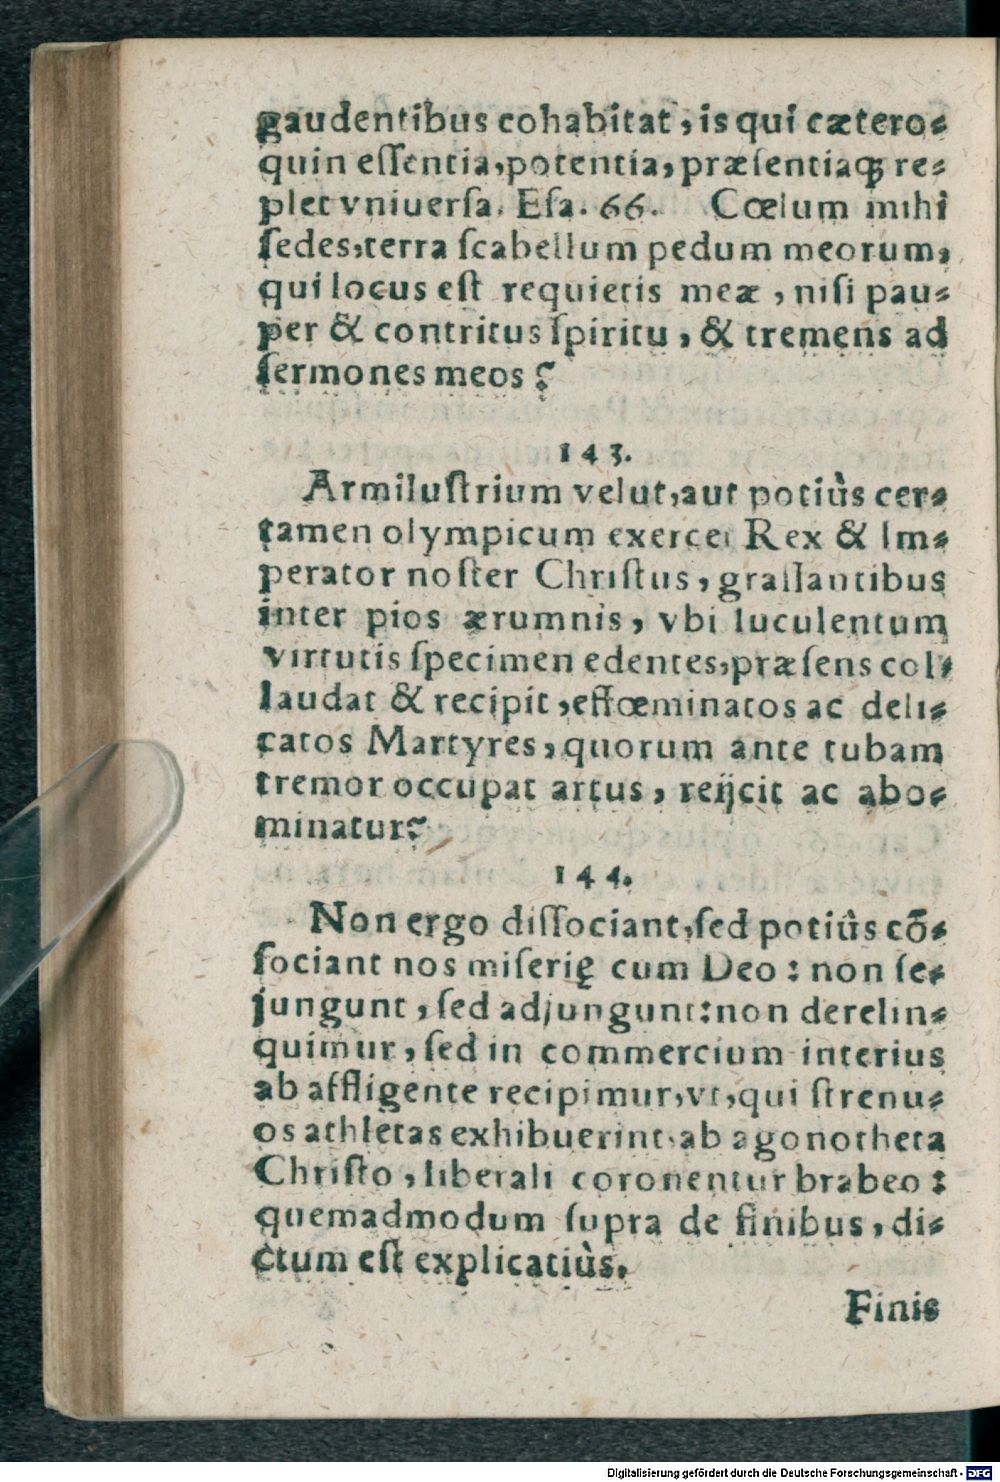 gaudentibus cohabitat, is qui cætero-
quin eſſentia, potentia, præſentiaq́ꝫ re-
plet vniuerſa. Eſa. 66. Cœlum mihi
ſedes, terra ſcabellum pedum meorum,
qui locus eſt requietis meæ, niſi pau-
per & contritus ſpiritu, & tremens ad
ſermones meos?
143.
Armiluſtrium velut, aut potiùs cer-
tamen olympicum exercet Rex & Im-
perator noſter Chriſtus, graſſantibus
inter pios ærumnis, vbi luculentum
virtutis ſpecimen edentes, præſens col-
laudat & recipit, effœminatos ac deli-
catos Martyres, quorum ante tubam
tremor occupat artus, reijcit ac abo-
minatur?
144.
Non ergo diſſociant, ſed potiùs cõ-
ſociant nos miſerię cum Deo: non ſe-
jungunt, ſed adjungunt: non derelin-
quimur, ſed in commercium interius
ab affligente recipimur, vt, qui ſtrenu-
os athletas exhibuerint, ab agonotheta
Chriſto, liberali coronentur brabeo:
quemadmodum ſupra de finibus, di-
ctum eſt explicatiùs.
Finis
Digitalisierung gefördert durch die Deutsche Forschungsgemeinschaft - DFG